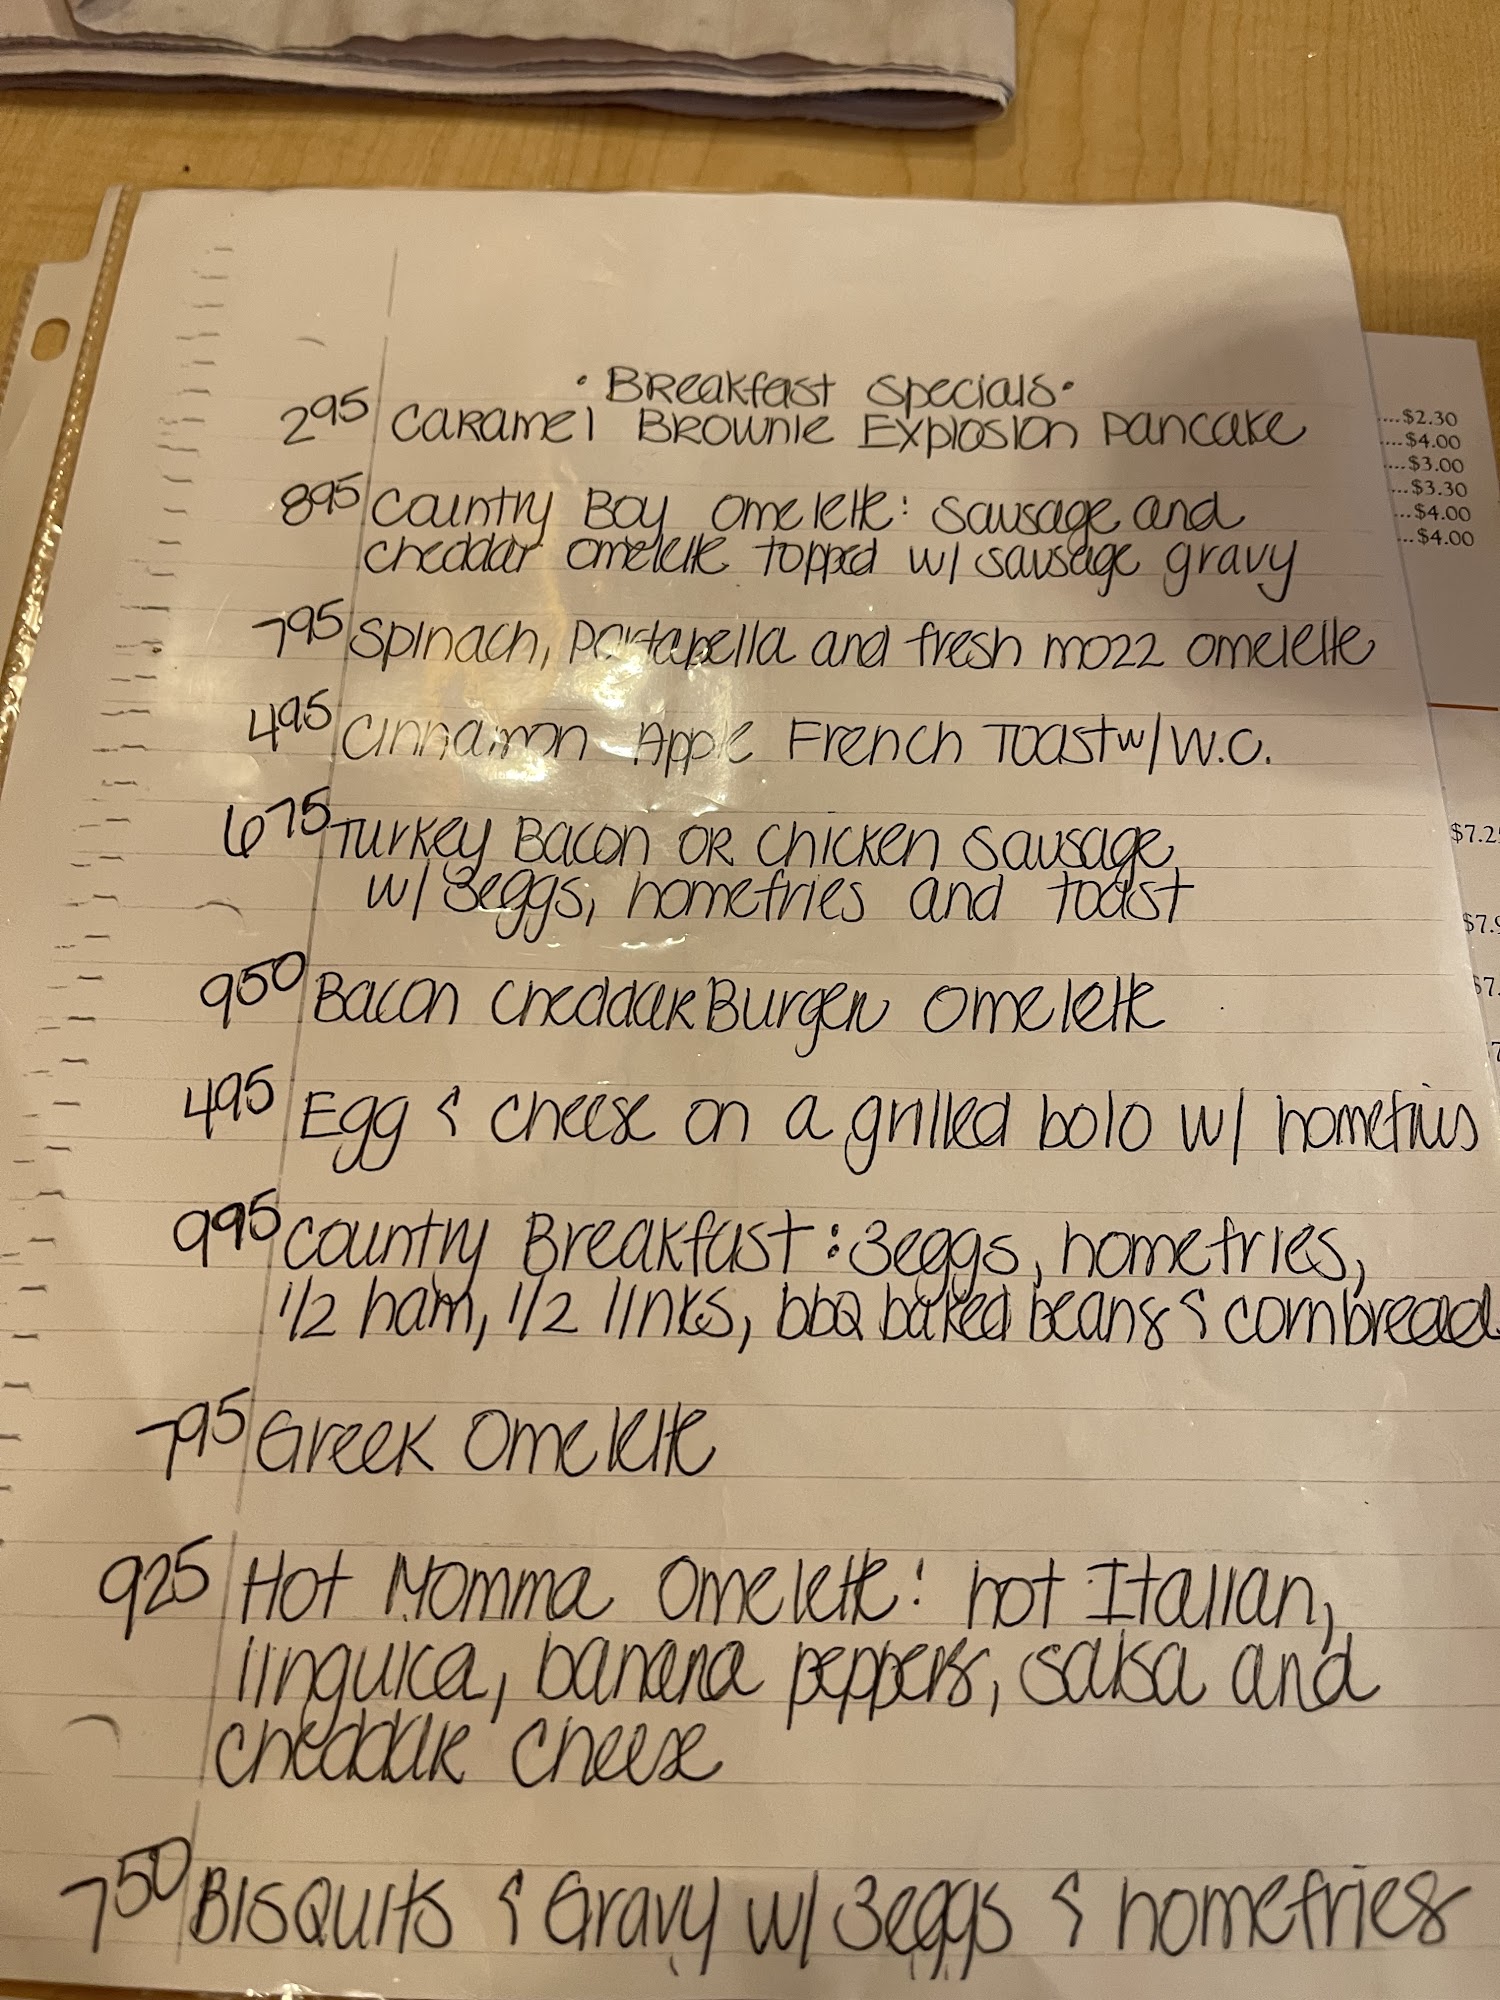 • Breakfast Specials •
2.95 Caramel Brownie Explosion Pancake
8.95 Country Boy Omelette: Sausage and
cheddar omelette topped w/ sausage gravy
7.95 Spinach, Portabella and fresh mozz omelette
4.95 Cinnamon Apple French Toast w/ W.C.
6.75 Turkey Bacon OR Chicken Sausage
w/ 3eggs, homefries and toast
9.50 Bacon Cheddar Burger Omelette
4.95 Egg & cheese on a grilled bolo w/ homefries
9.95 Country Breakfast: 3eggs, homefries,
1/2 ham, 1/2 links, bbq baked beans & cornbread
7.95 Greek Omelette
9.25 Hot Momma Omelette: hot Italian,
linguica, banana peppers, salsa and
cheddar cheese
7.50 Bisquits & Gravy w/ 3eggs & homefries
....$2.30
....$4.00
....$3.00
...$3.30
...$4.00
...$4.00